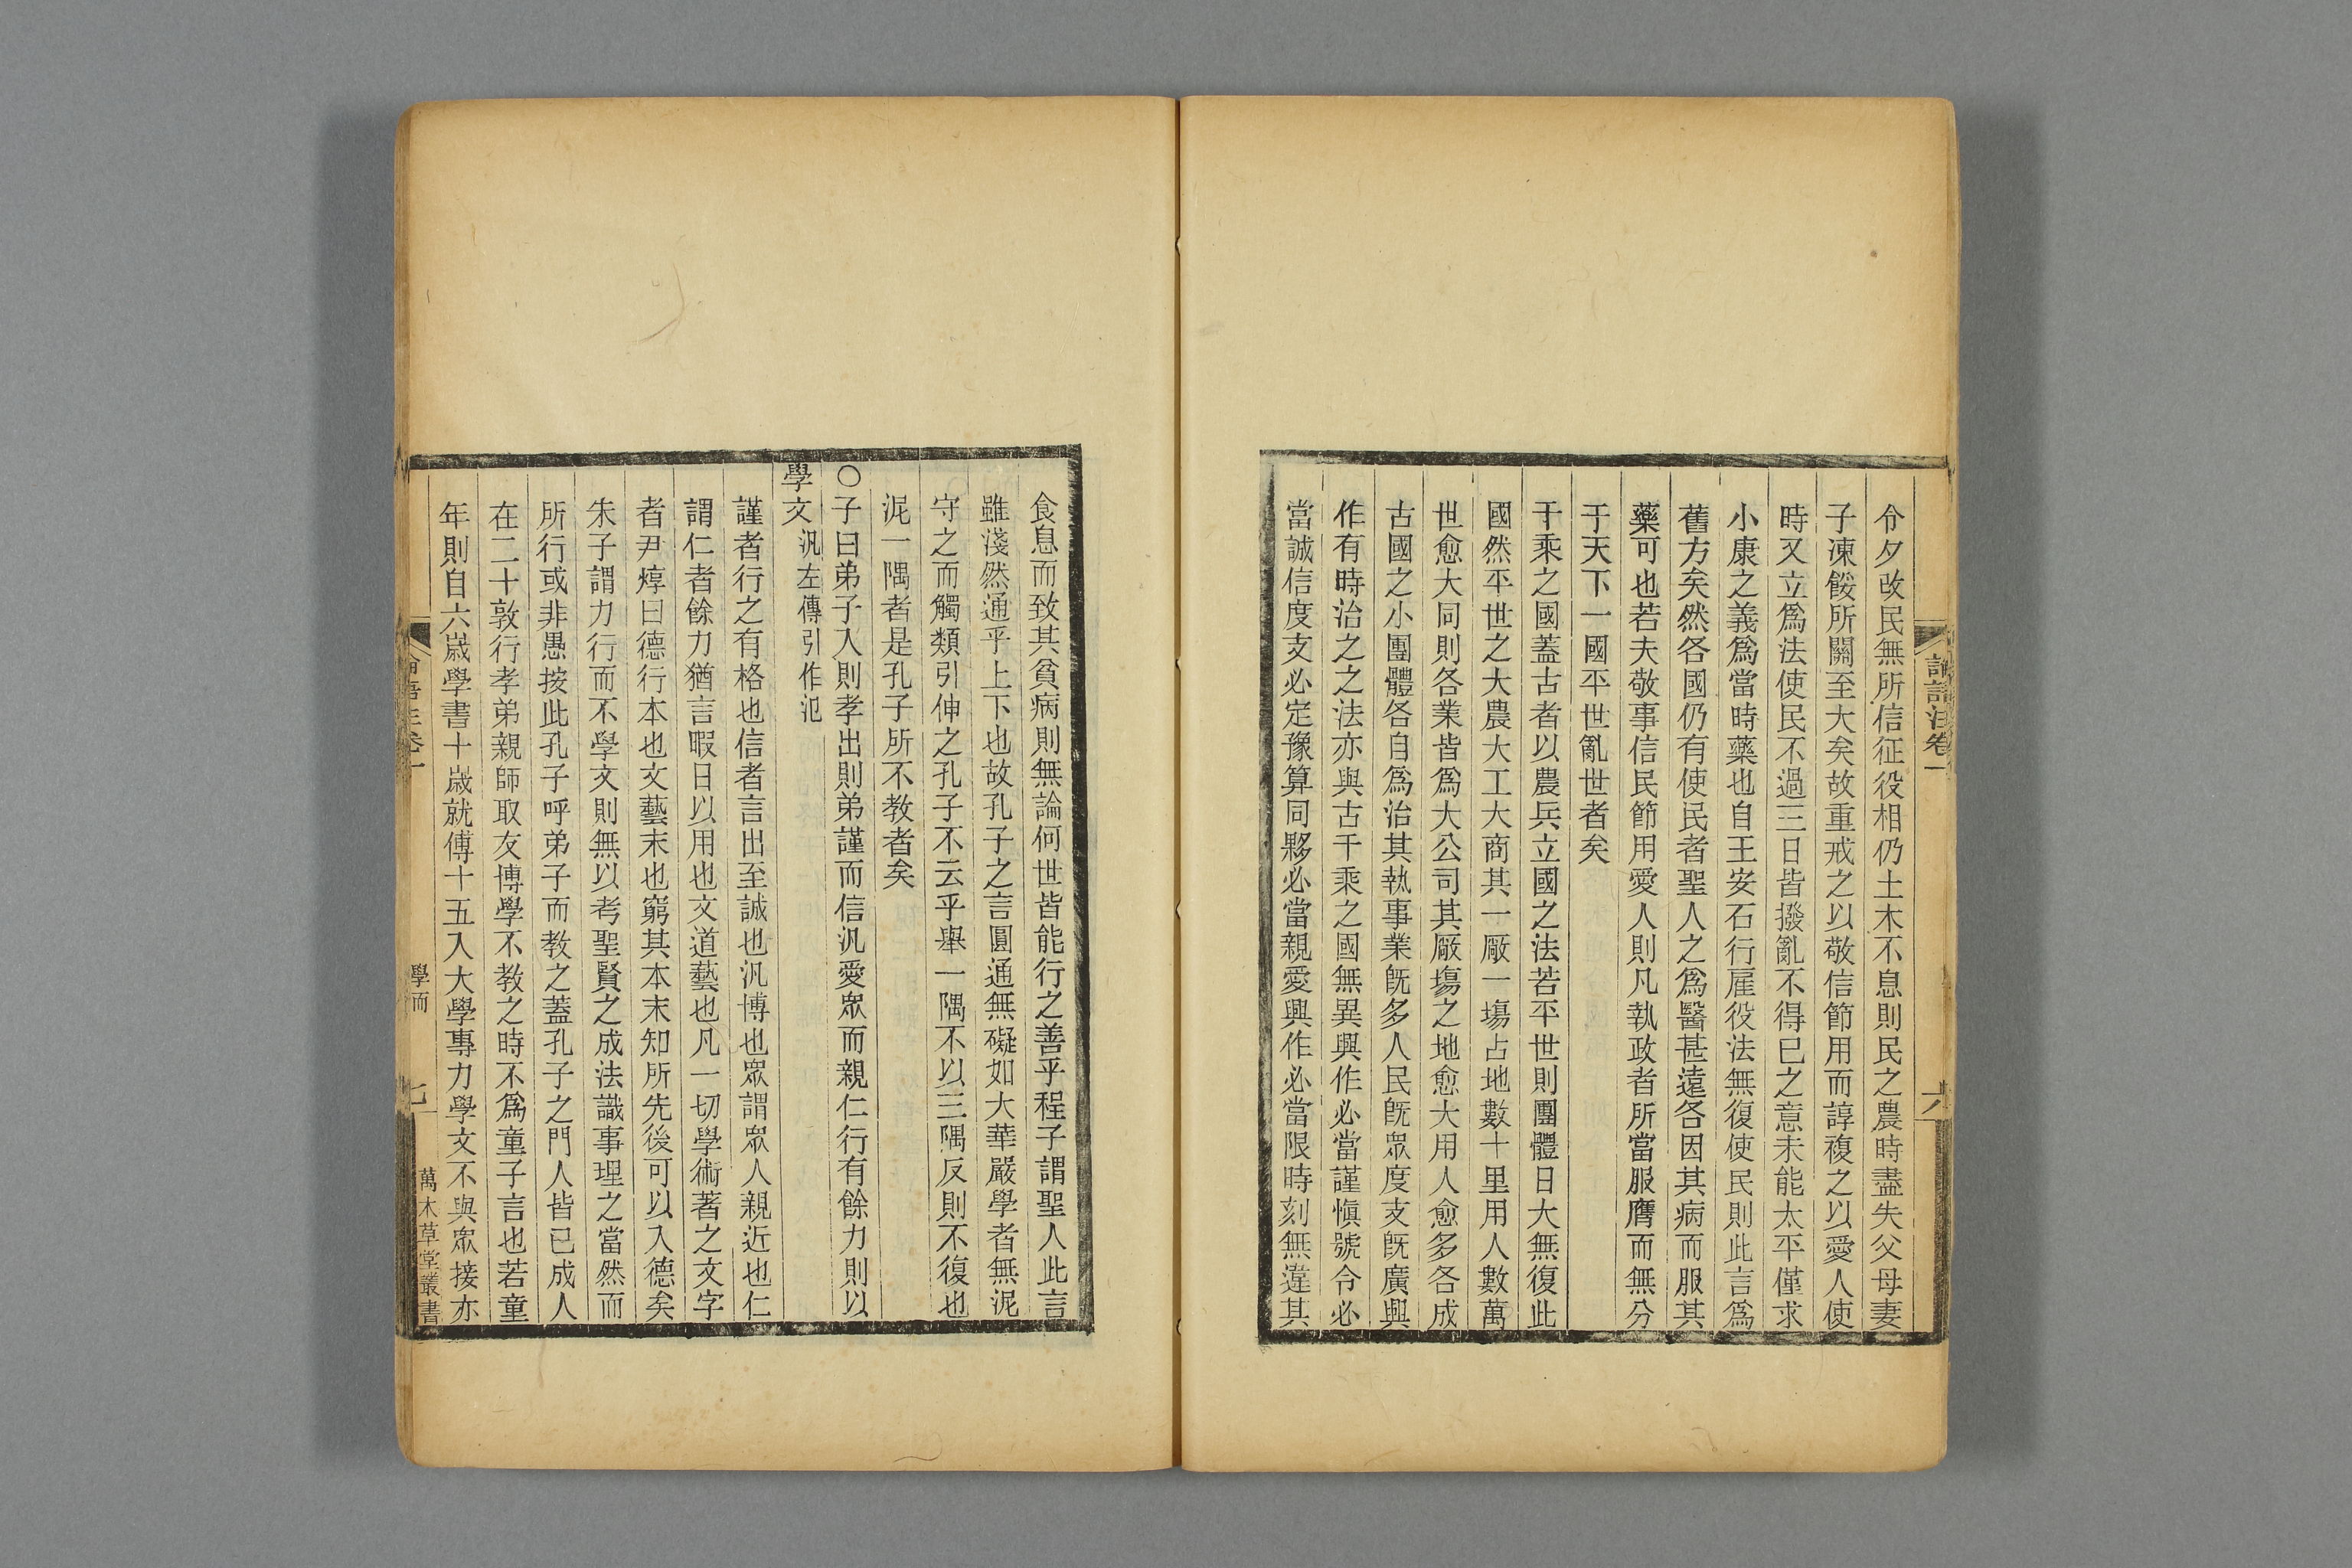 論語注卷一
六
令夕改民無所信征役相仍土木不息則民之農時盡失父母妻
子凍餒所關至大矣故重戒之以敬信節用而諄複之以愛人使
時又立爲法使民不過三日皆撥亂不得已之意未能太平僅求
小康之義爲當時藥也自王安石行雇役法無復使民則此言爲
舊方矣然各國仍有使民者聖人之爲醫甚遠各因其病而服其
藥可也若夫敬事信民節用愛人則凡執政者所當服膺而無分
于天下一國平世亂世者矣
千乘之國蓋古者以農兵立國之法若平世則團體日大無復此
國然平世之大農大工大商其一厰一塲占地數十里用人數萬
世愈大同則各業皆爲大公司其厰塲之地愈大用人愈多各成
古國之小團體各自爲治其執事業旣多人民旣眾度支旣廣興
作有時治之之法亦與古千乘之國無異興作必當謹愼號令必
當誠信度支必定豫算同夥必當親愛興作必當限時刻無違其
食息而致其貧病則無論何世皆能行之善乎程子謂聖人此言
雖淺然通乎上下也故孔子之言圓通無礙如大華嚴學者無泥
守之而觸類引伸之孔子不云乎舉一隅不以三隅反則不復也
泥一隅者是孔子所不教者矣
○子曰弟子入則孝出則弟謹而信汎愛眾而親仁行有餘力則以
學文汎左傳引作氾
謹者行之有格也信者言出至誠也汎博也眾謂眾人親近也仁
謂仁者餘力猶言暇日以用也文道藝也凡一切學術著之文字
者尹焞曰德行本也文藝末也窮其本末知所先後可以入德矣
朱子謂力行而不學文則無以考聖賢之成法識事理之當然而
所行或非愚按此孔子呼弟子而教之蓋孔子之門人皆已成人
在二十敦行孝弟親師取友博學不教之時不爲童子言也若童
年則自六歲學書十歲就傅十五入大學專力學文不與眾接亦
論語注卷一
學而
七
萬木草堂叢書